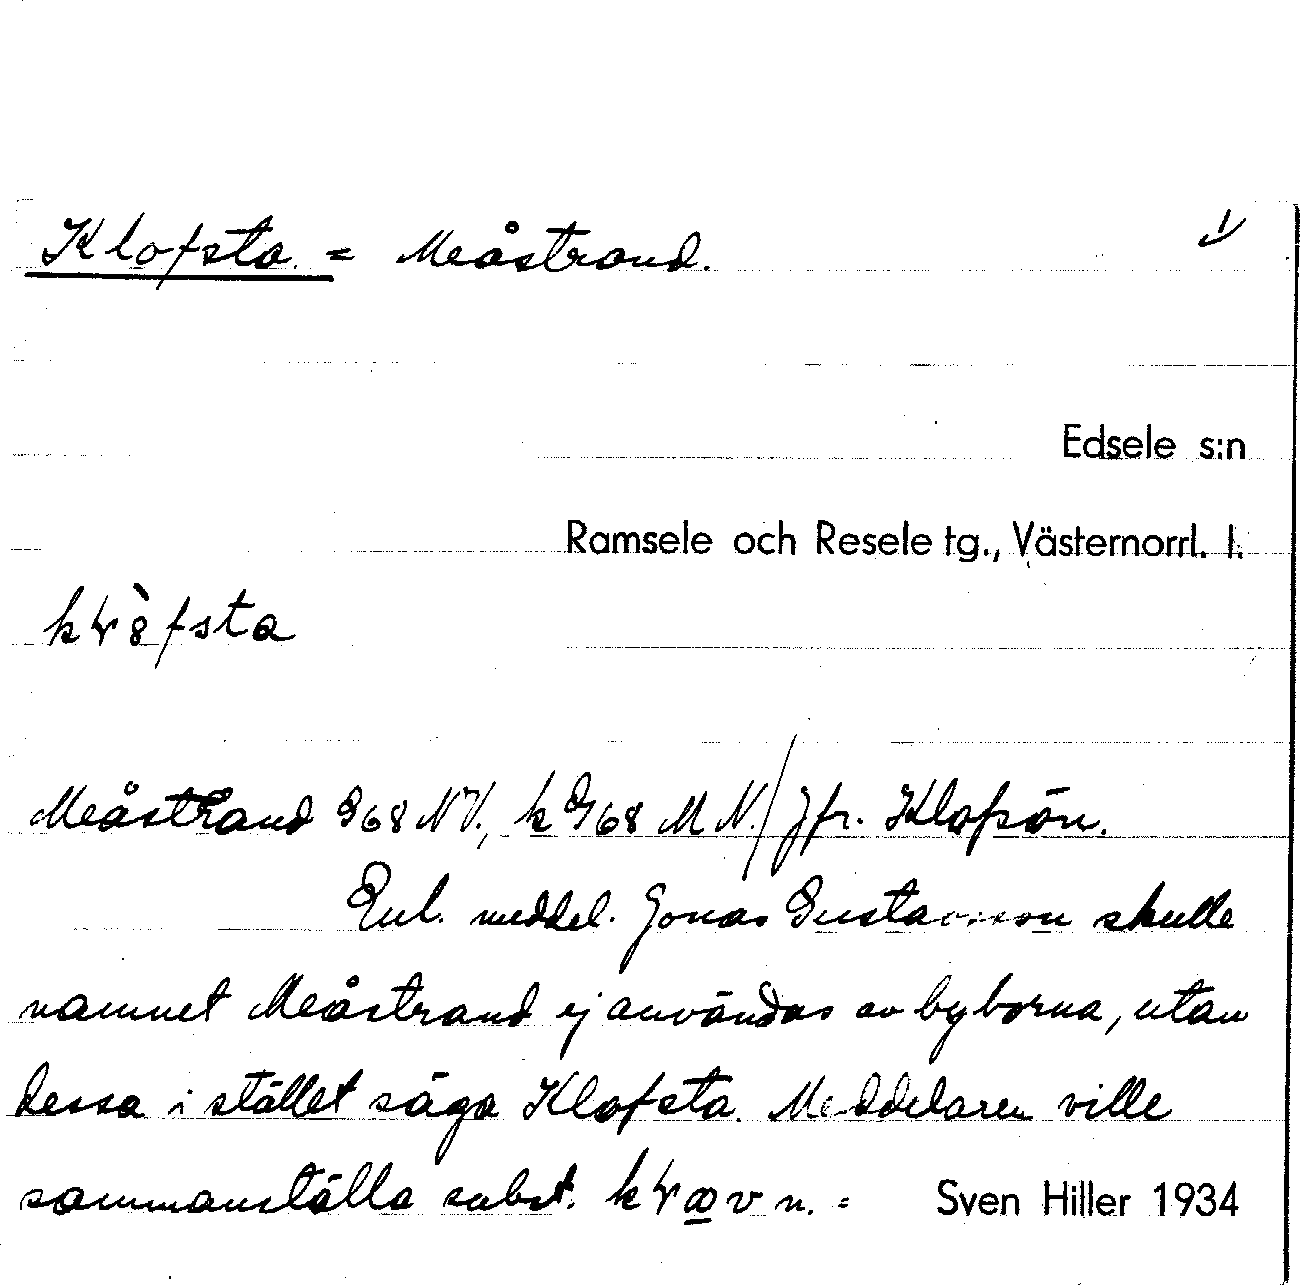 Klofsta = Meåstrand.
Edsele s:n
Ramsele och Resele tg., Västernorrl. l.
Meåstrand G68 NV., k G68 M N./ Jfr. Klofsön.
Enl. meddel. Jonas Gustavsson skulle
namnet Meåstrand ej användas av byborna, utan
dessa i stället säga Klofsta. Meddelaren ville
sammanställa subst. n. =
Sven Hiller 1934